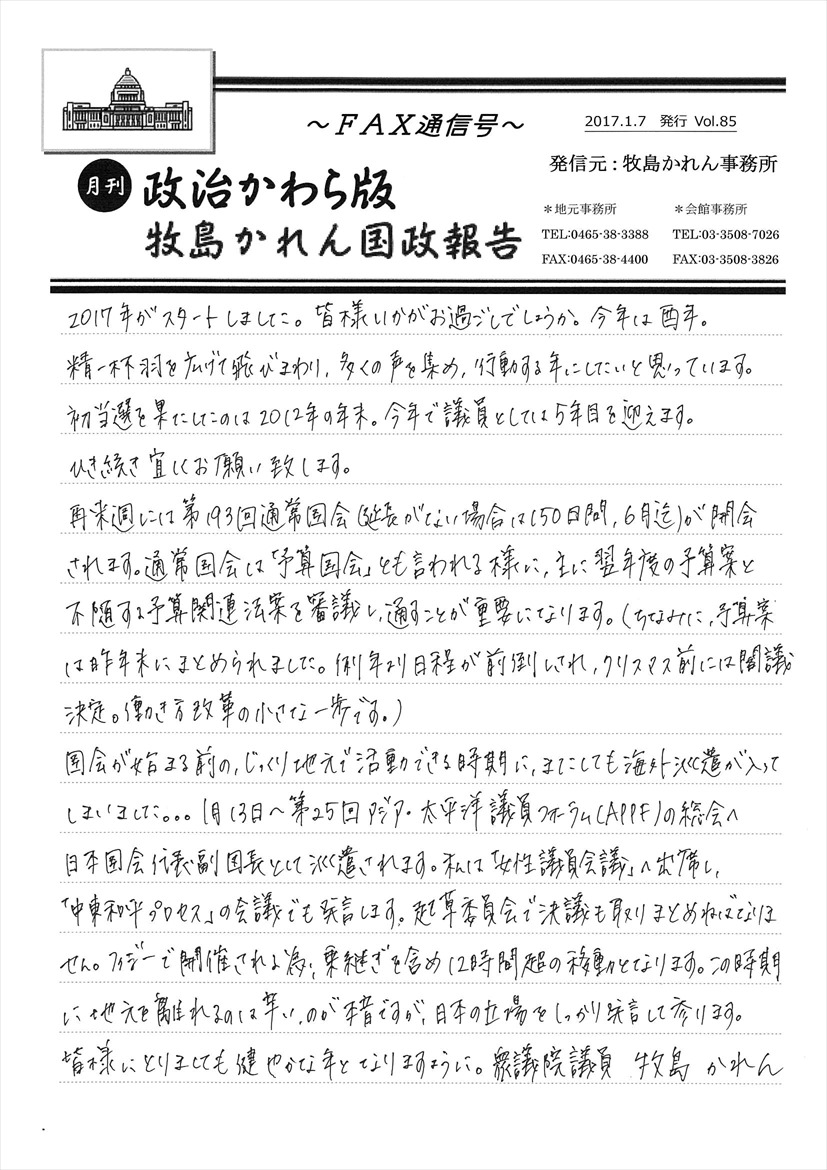 ～FAX通信号～
2017.1.7 発行 Vol.85
発信元：牧島かれん事務所
月刊 政治かわら版
牧島かれん国政報告
＊地元事務所 ＊会館事務所
TEL:0465-38-3388 TEL:03-3508-7026
FAX:0465-38-4400 FAX:03-3508-3826
2017年がスタートしました。皆様いかがお過ごしでしょうか。今年は酉年。
精一杯羽を広げて飛びまわり，多くの声を集め，行動する年にしたいと思っています。
初当選を果たしたのは2012年の年末。今年で議員としては5年目を迎えます。
ひき続き宜しくお願い致します。
再来週には第193回通常国会(延長がない場合は150日間，6月迄)が開会
されます。通常国会は「予算国会」とも言われる様に，主に翌年度の予算案と
不随する予算関連法案を審議し，通すことが重要になります。(ちなみに，予算案
は昨年末にまとめられました。例年より日程が前倒しされ，クリスマス前には閣議
決定。働き方改革の小さな一歩です。)
国会が始まる前の，じっくり地元で活動できる時期に，またしても海外派遣が入って
しまいました。。。1月13日〜第25回アジア・太平洋議員フォーラム(APPF)の総会へ
日本国会代表副団長として派遣されます。私は「女性議員会議」へ出席し，
「中東和平プロセス」の会議でも発言します。起草委員会で決議も取りまとめねばなりま
せん。フィジーで開催される為，乗継ぎを含め12時間超の移動となります。この時期
に地元を離れるのは辛い，のが本音ですが，日本の立場をしっかり発言して参ります。
皆様にとりましても健やかな年となりますように。衆議院議員 牧島 かれん